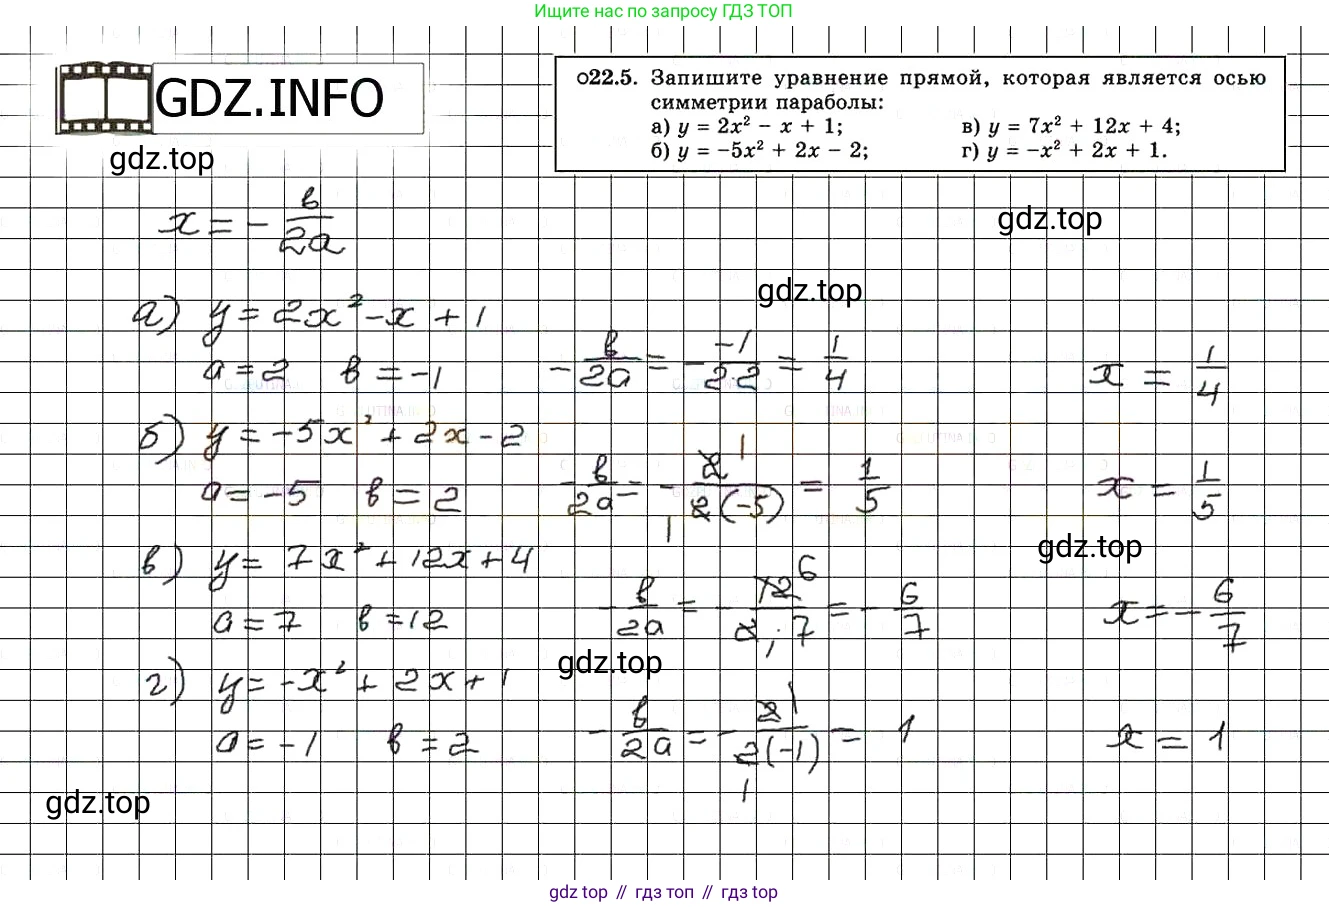 Ищите нас по запросу ГДЗ ТОП
GDZ.INFO
gdz.top
о22.5. Запишите уравнение прямой, которая является осью
симметрии параболы:
а) y = 2x² − x + 1; в) y = 7x² + 12x + 4;
б) y = −5x² + 2x − 2; г) y = −x² + 2x + 1.
gdz.top
x = - в/2a
gdz.top
а) y = 2x² - x + 1
a = 2 в = -1 - в/2a = - -1/2·2 = 1/4 x = 1/4
б) y = -5x² + 2x - 2
a = -5 в = 2 - в/2a = - 2 1/2(-5) 1 = 1/5 x = 1/5
gdz.top
в) y = 7x² + 12x + 4
a = 7 в = 12 - в/2a = - 12 6/2 1·7 = - 6/7 x = - 6/7
gdz.top
г) y = -x² + 2x + 1
a = -1 в = 2 - в/2a = - 2 1/2(-1) 1 = 1 x = 1
gdz.top
gdz top // гдз топ // gdz top